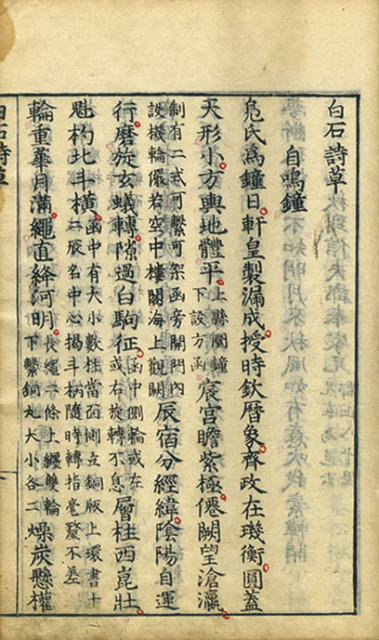 白石詩草
自鳴鐘
鳧氏為鐘日軒皇製漏成授時欽曆象齊政在璣衡圓蓋
天形小方輿地體平上縣圜鐘下設方函宸宮瞻紫極僊闕望滄瀛
制有二式可繫可架函旁開門內設機輪儼若空中樓閣海上觀闕辰宿分經緯陰陽自運
行磨旋玄蟻轉隙過白駒征函中側輪或左或右旋轉不息層柱西崑壯
魁杓北斗橫函中有大小數柱當面側立銅版上環書十二辰名中心揭斗柄隨時轉指毫釐不差
輪重華月滿繩直絳河明長繩二條上纏雙輪下繫銅丸大小各二燥炭懸權
白石詩草